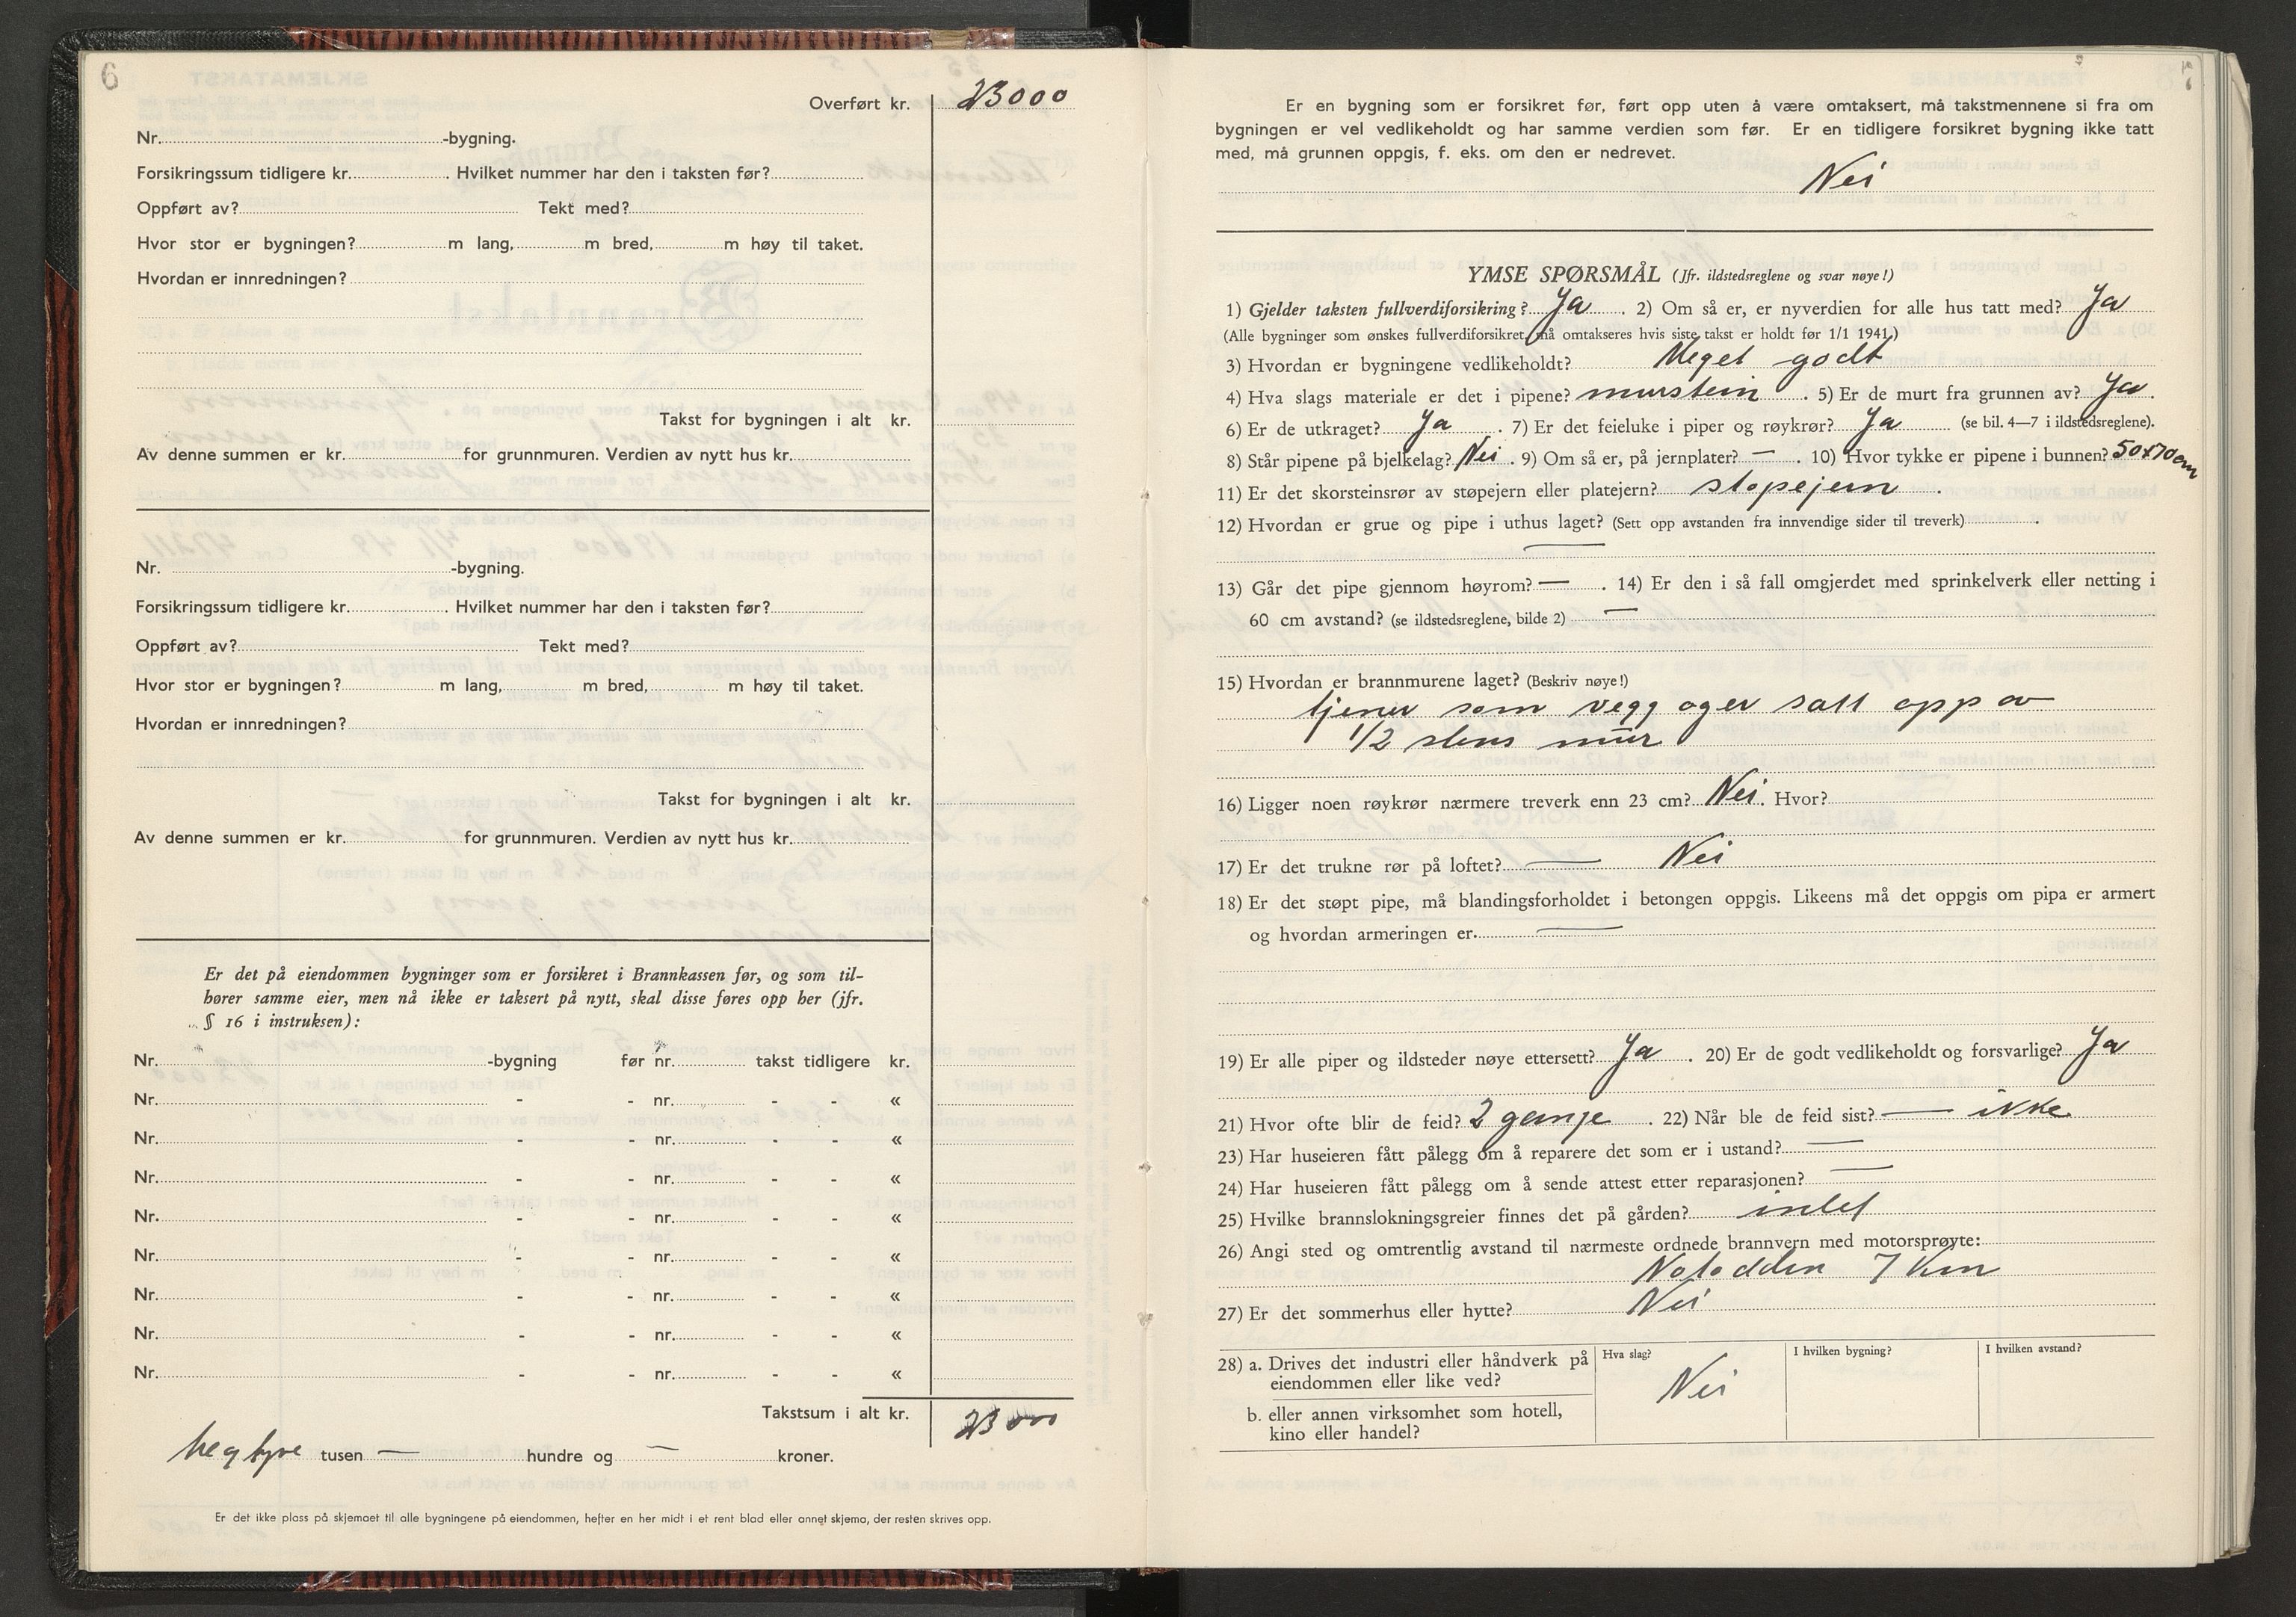 6
Overført kr. 23000
Nr. -bygning.
Forsikringssum tidligere kr. . Hvilket nummer har den i taksten før?
Oppført av? Tekt med?
Hvor stor er bygningen? m lang, m bred, m høy til taket.
Hvordan er innredningen?
Takst for bygningen i alt kr.
Av denne summen er kr. for grunnmuren. Verdien av nytt hus kr.
Nr. -bygning.
Forsikringssum tidligere kr. . Hvilket nummer har den i taksten før?
Oppført av? Tekt med?
Hvor stor er bygningen? m lang, m bred, m høy til taket.
Hvordan er innredningen?
Takst for bygningen i alt kr.
Av denne summen er kr. for grunnmuren. Verdien av nytt hus kr.
Er det på eiendommen bygninger som er forsikret i Brannkassen før, og som til-
hører samme eier, men nå ikke er taksert på nytt, skal disse føres opp her (jfr.
§ 16 i instruksen):
Nr. -bygning før nr. takst tidligere kr.
Nr. - - nr. - - «
Nr. - - nr. - - «
Nr. - - nr. - - «
Nr. - - nr. - - «
Nr. - - nr. - - «
Nr. - - nr. - - «
Nr. - - nr. - - «
Nr. - - nr. - - «
Takstsum i alt kr. 23000
tusen — hundre og — kroner.
Er det ikke plass på skjemaet til alle bygningene på eiendommen, hefter en her midt i et rent blad eller annet skjema, der resten skrives opp.
Er en bygning som er forsikret før, ført opp uten å være omtaksert, må takstmennene si fra om
bygningen er vel vedlikeholdt og har samme verdien som før. Er en tidligere forsikret bygning ikke tatt
med, må grunnen oppgis, f. eks. om den er nedrevet.
Nei
YMSE SPØRSMÅL (Jfr. ildstedsreglene og svar nøye!)
1) Gjelder taksten fullverdiforsikring? Ja . 2) Om så er, er nyverdien for alle hus tatt med? Ja
(Alle bygninger som ønskes fullverdiforsikret, må omtakseres hvis siste takst er holdt før 1/1 1941.)
3) Hvordan er bygningene vedlikeholdt? Meget godt
4) Hva slags materiale er det i pipene? murstein . 5) Er de murt fra grunnen av? Ja .
6) Er de utkraget? Ja . 7) Er det feieluke i piper og røykrør? Ja (se bil. 4—7 i ildstedsreglene).
8) Står pipene på bjelkelag? Nei . 9) Om så er, på jernplater? — . 10) Hvor tykke er pipene i bunnen? 50x70 cm
11) Er det skorsteinsrør av støpejern eller platejern? støpejern .
12) Hvordan er grue og pipe i uthus laget? (Sett opp avstanden fra innvendige sider til treverk) .
—
13) Går det pipe gjennom høyrom? — . 14) Er den i så fall omgjerdet med sprinkelverk eller netting i
60 cm avstand? (se ildstedsreglene, bilde 2) —
15) Hvordan er brannmurene laget? (Beskriv nøye!)
tjener som vegg og er satt opp av
1/2 stens mur
16) Ligger noen røykrør nærmere treverk enn 23 cm? Nei. Hvor?
17) Er det trukne rør på loftet? — Nei
18) Er det støpt pipe, må blandingsforholdet i betongen oppgis. Likeens må det oppgis om pipa er armert
og hvordan armeringen er. —
19) Er alle piper og ildsteder nøye ettersett? Ja . 20) Er de godt vedlikeholdt og forsvarlige? Ja
21) Hvor ofte blir de feid? 2 gange . 22) Når ble de feid sist? — ikke
23) Har huseieren fått pålegg om å reparere det som er i ustand? —
24) Har huseieren fått pålegg om å sende attest etter reparasjonen? —
25) Hvilke brannslokningsgreier finnes det på gården? intet
26) Angi sted og omtrentlig avstand til nærmeste ordnede brannvern med motorsprøyte:
Notodden 7 Km
27) Er det sommerhus eller hytte? Nei
28) a. Drives det industri eller håndverk på Hva slag? I hvilken bygning? I hvilken avstand?
eiendommen eller like ved? Nei
b. eller annen virksomhet som hotell,
kino eller handel?